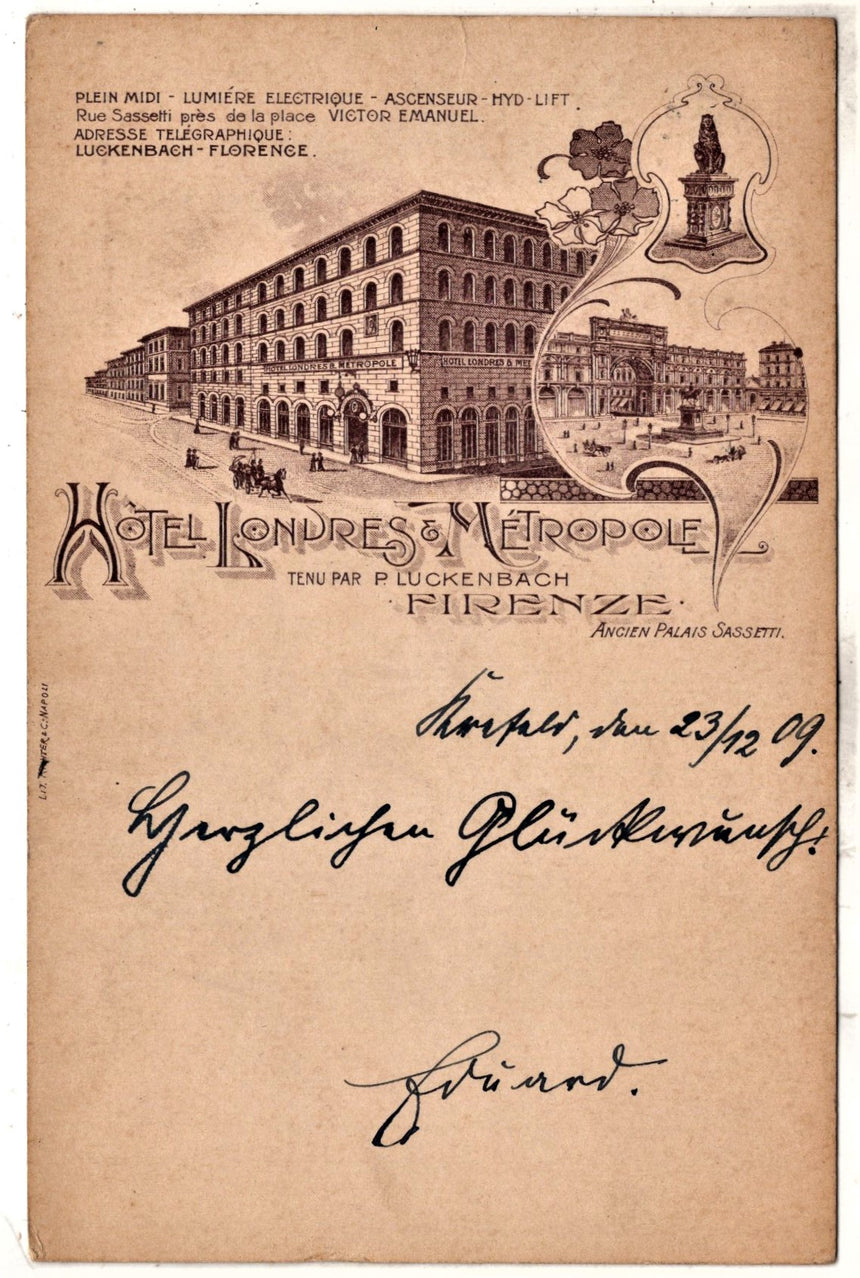 PLEIN MIDI - LUMIÉRE ELECTRIQUE - ASCENSEUR - HYD - LIFT
Rue Sassetti près de la place VICTOR EMANUEL.
ADRESSE TELÉGRAPHIQUE:
LUCKENBACH - FLORENCE.
HOTEL LONDRES & METROPOLE
HOTEL LONDRES & ME
HÔTEL LONDRES & MÉTROPOLE
TENU PAR P. LUCKENBACH
· FIRENZE ·
ANCIEN PALAIS SASSETTI.
LIT. & C. NAPOLI
Krefeld, den 23/12 09.
Herzlichen Glückwunsch!
Eduard.